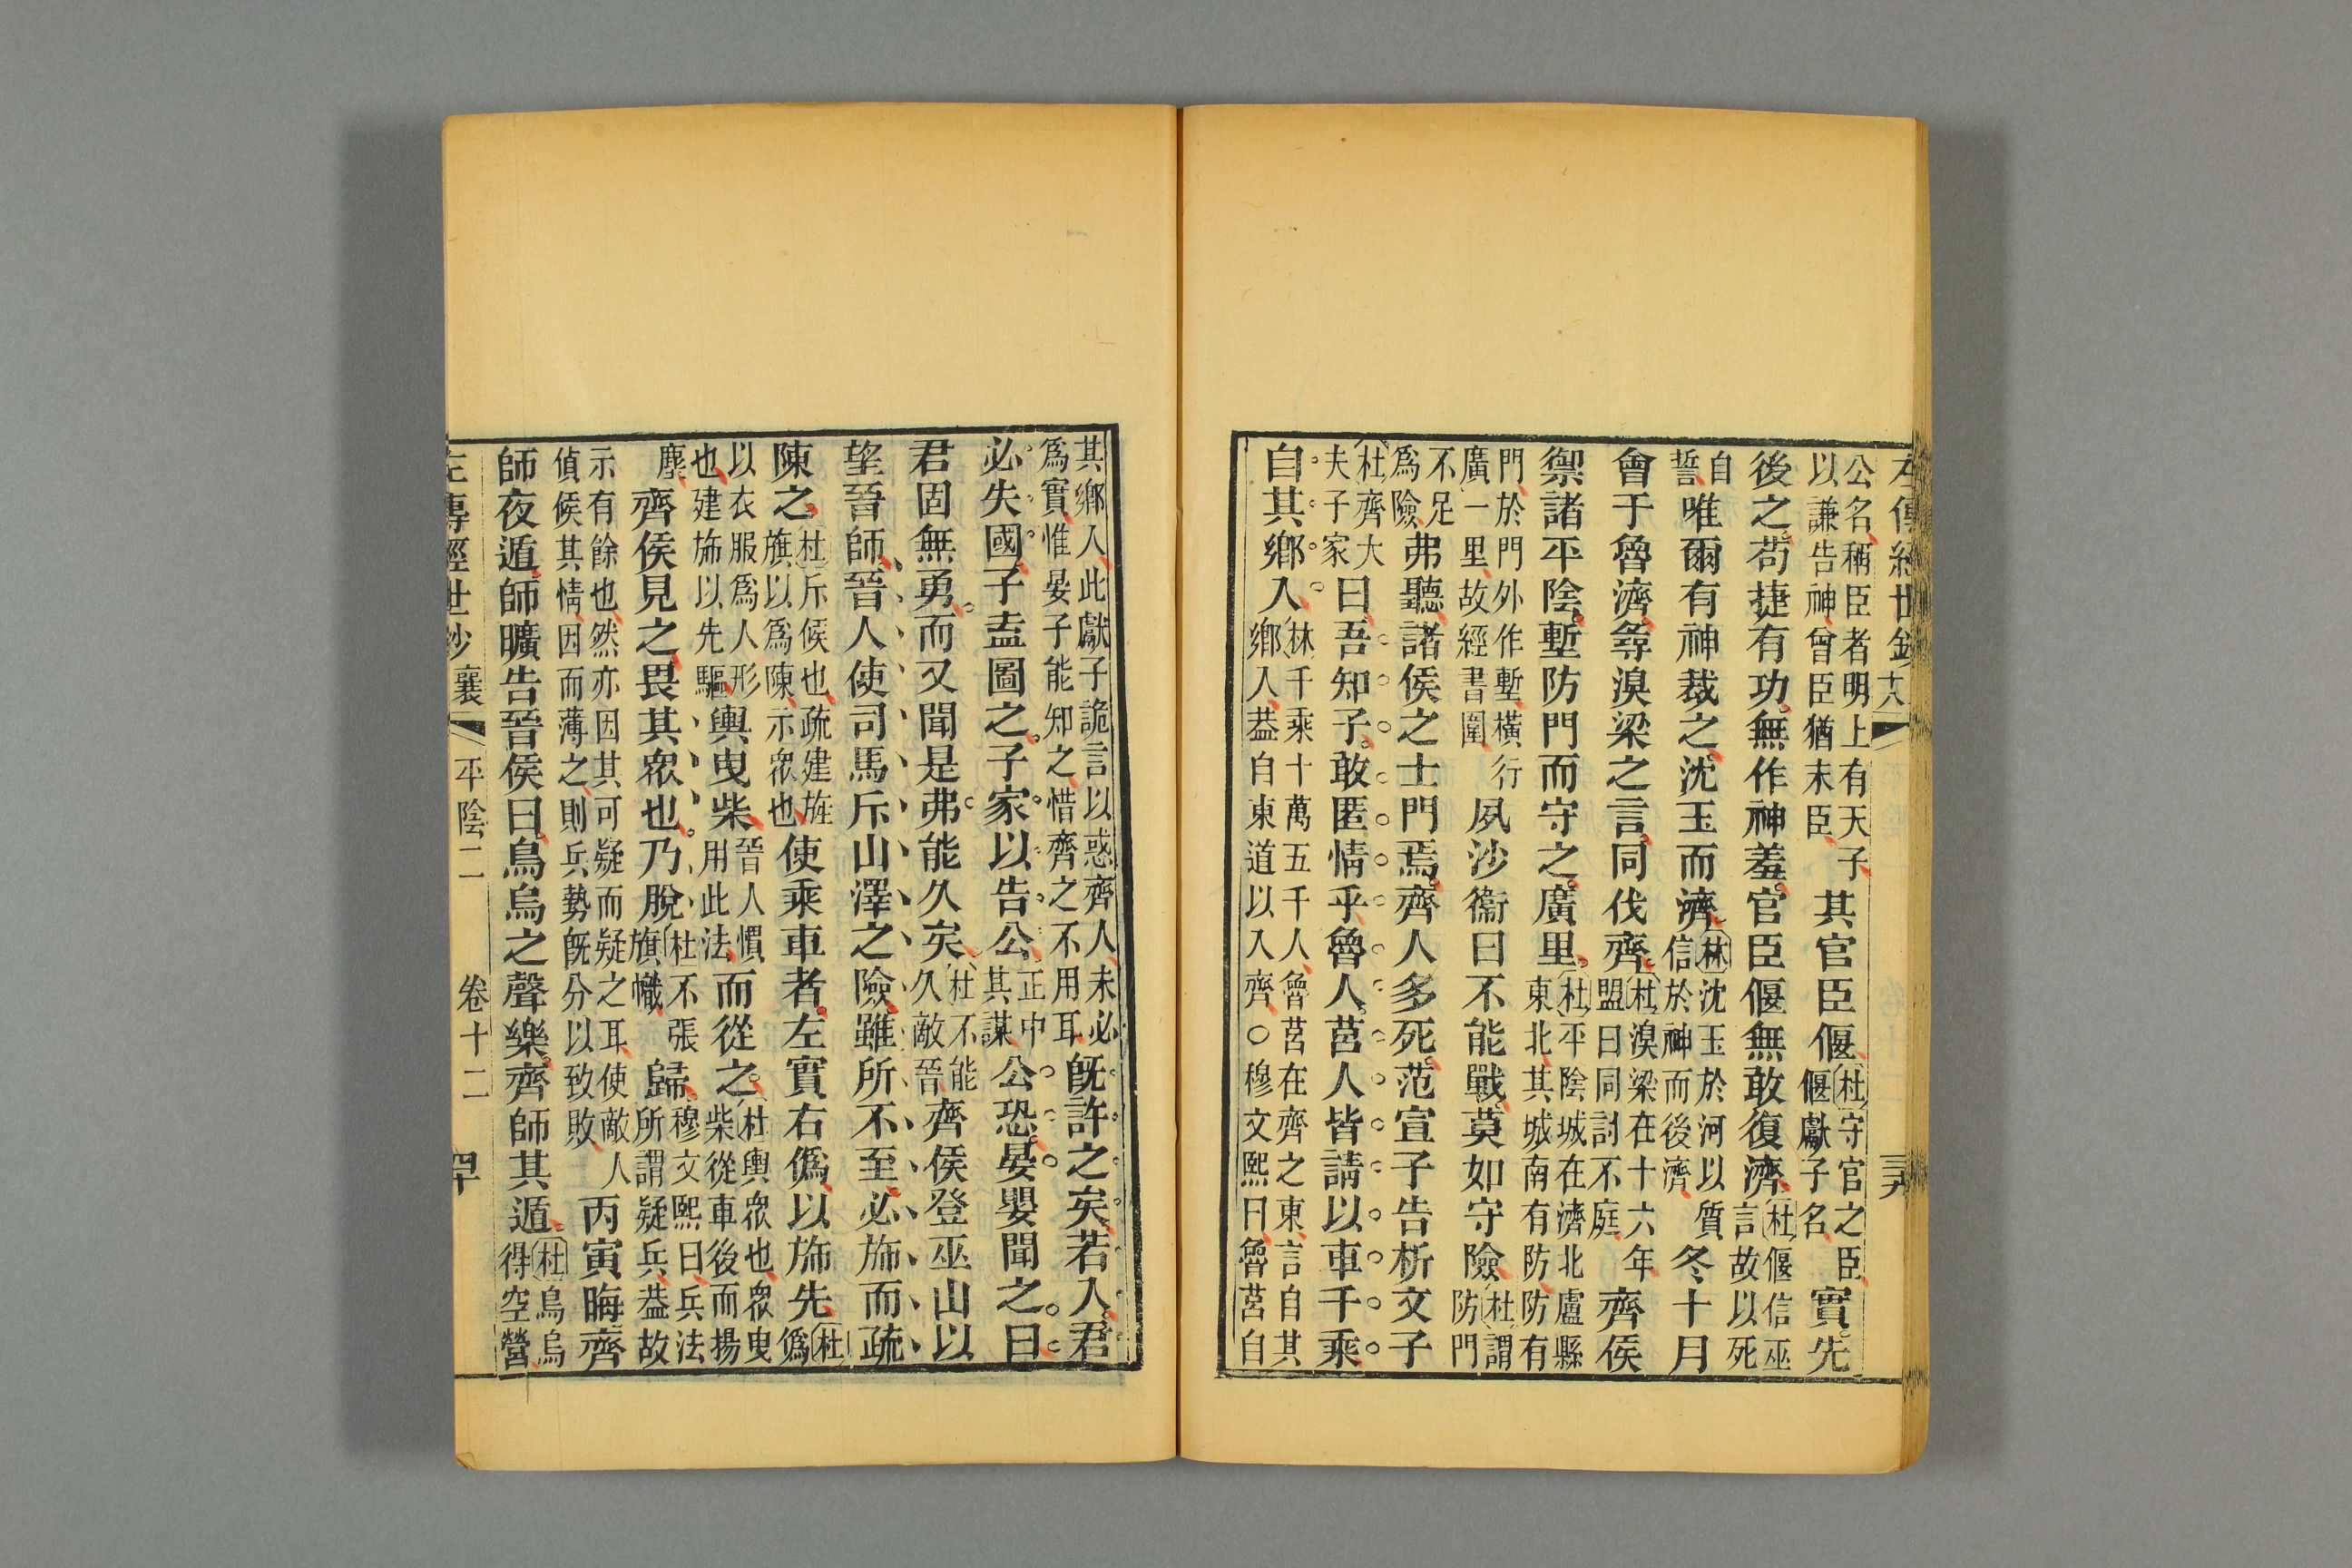 左傳經世鈔 十八 三九
公名稱臣者明上有天子以謙告神曾臣猶末臣其官臣偃杜守官之臣偃獻子名實先
後之苟捷有功無作神羞官臣偃無敢復濟杜偃信巫言故以死
自誓唯爾有神裁之沈玉而濟林沈玉於河以質信於神而後濟冬十月
會于魯濟尋湨梁之言同伐齊杜湨梁在十六年盟曰同討不庭齊侯
禦諸平陰塹防門而守之廣里杜平陰城在濟北盧縣東北其城南有防防有
門於門外作塹橫行廣一里故經書圍夙沙衞曰不能戰莫如守險杜謂防門
不足爲險弗聽諸侯之士門焉齊人多死范宣子告析文子
杜齊大夫子家曰吾知子敢匿情乎魯人莒人皆請以車千乘
自其鄉入林千乘十萬五千人魯莒在齊之東言自其鄉入葢自東道以入齊○穆文熙曰魯莒自
其鄉入此獻子詭言以惑齊人未必爲實惟晏子能知之惜齊之不用耳旣許之矣若入君
必失國子盍圖之子家以告公正中其謀公恐晏嬰聞之曰
君固無勇而又聞是弗能久矣杜不能久敵晉齊侯登巫山以
望晉師晉人使司馬斥山澤之險雖所不至必旆而疏
陳之杜斥候也疏建旌旗以爲陳示衆也使乘車者左實右僞以旆先杜僞
以衣服爲人形也建旆以先驅輿曳柴晉人慣用此法而從之杜輿衆也衆曳柴從車後而揚
塵齊侯見之畏其衆也乃脫杜不張旗幟歸穆文熙曰兵法所謂疑兵葢故
示有餘也然亦因其可疑而疑之耳使敵人偵候其情因而薄之則兵勢旣分以致敗丙寅晦齊
師夜遁師曠告晉侯曰鳥烏之聲樂齊師其遁杜鳥烏得空營
左傳經世鈔 襄 平陰二 卷十二 四十